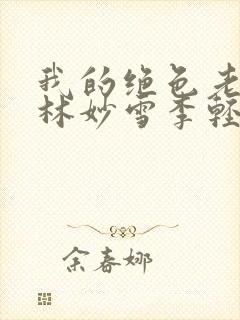 我的绝色老
林妙雪季轻
余春娜